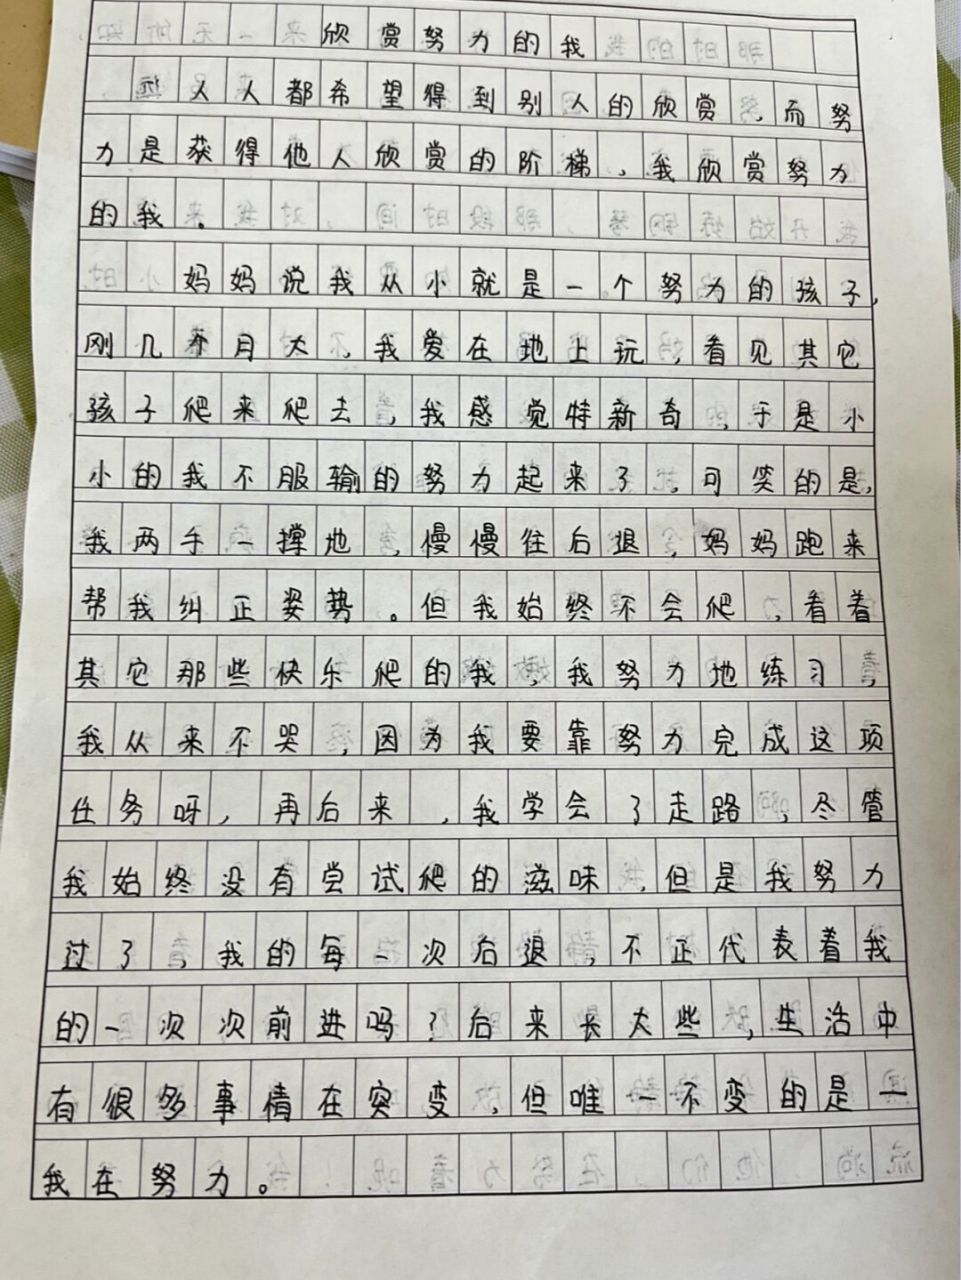 欣赏努力的我
人人都希望得到别人的欣赏,而努
力是获得他人欣赏的阶梯,我欣赏努力
的我。
妈妈说我从小就是一个努力的孩子,
刚几个月大,我爱在地上玩,看见其它
孩子爬来爬去,我感觉特新奇,于是小
小的我不服输的努力起来了,可笑的是,
我两手一撑地,慢慢往后退,妈妈跑来
帮我纠正姿势。但我始终不会爬,看着
其它那些快乐爬的我,我努力地练习,
我从来不哭,因为我要靠努力完成这项
任务呀,再后来,我学会了走路,尽管
我始终没有尝试爬的滋味,但是我努力
过了,我的每一次后退,不正代表着我
的一次次前进吗?后来长大些,生活中
有很多事情在突变,但唯一不变的是一
我在努力。